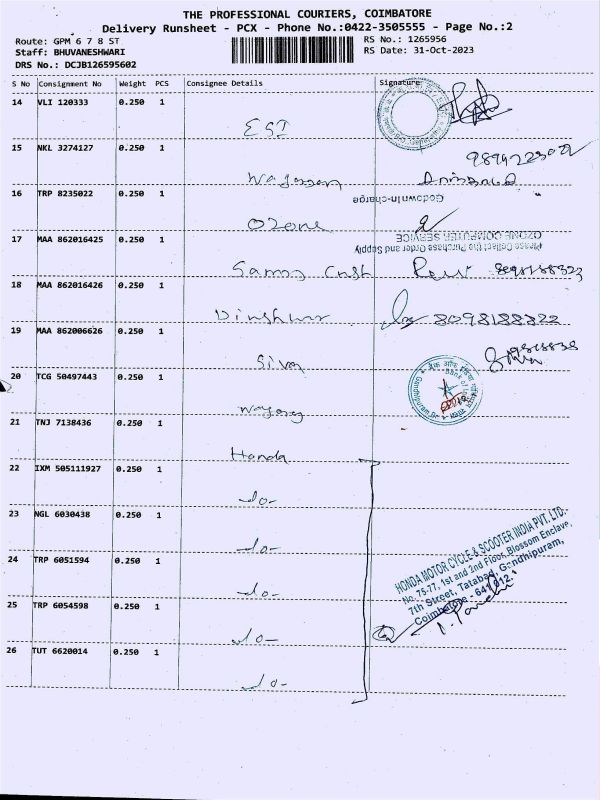 THE PROFESSIONAL COURIERS, COIMBATORE
Delivery Runsheet - PCX - Phone No.:0422-3505555 - Page No.:2
Route: GPM 6 7 8 ST
RS No.: 1265956
Staff: BHUVANESHWARI
RS Date: 31-Oct-2023
DRS No.: DCJB126595602
S No Consignment No Weight PCS Consignee Details Signature
14 VLI 120333 0.250 1
ESI
15 NKL 3274127 0.250 1
16 TRP 8235022 0.250 1
Godown In-charge
Ozone
17 MAA 862016425 0.250 1
OZONE COMPUTER SERVICE
Please Collect the Purchase Order and Supply
18 MAA 862016426 0.250 1
8098188822
19 MAA 862006626 0.250 1
Siva
20 TCG 50497443 0.250 1
21 TNJ 7138436 0.250 1
Honda
22 IXM 505111927 0.250 1
-do-
23 NGL 6030438 0.250 1
-do-
24 TRP 6051594 0.250 1
-do-
25 TRP 6054598 0.250 1
-do-
26 TUT 6620014 0.250 1
-do-
HONDA MOTOR CYCLE & SCOOTER INDIA PVT. LTD.
No. 75-77, 1st and 2nd Floor, Blossom Enclave,
7th Street, Tatabad, Gandhipuram,
Coimbatore - 641 012.